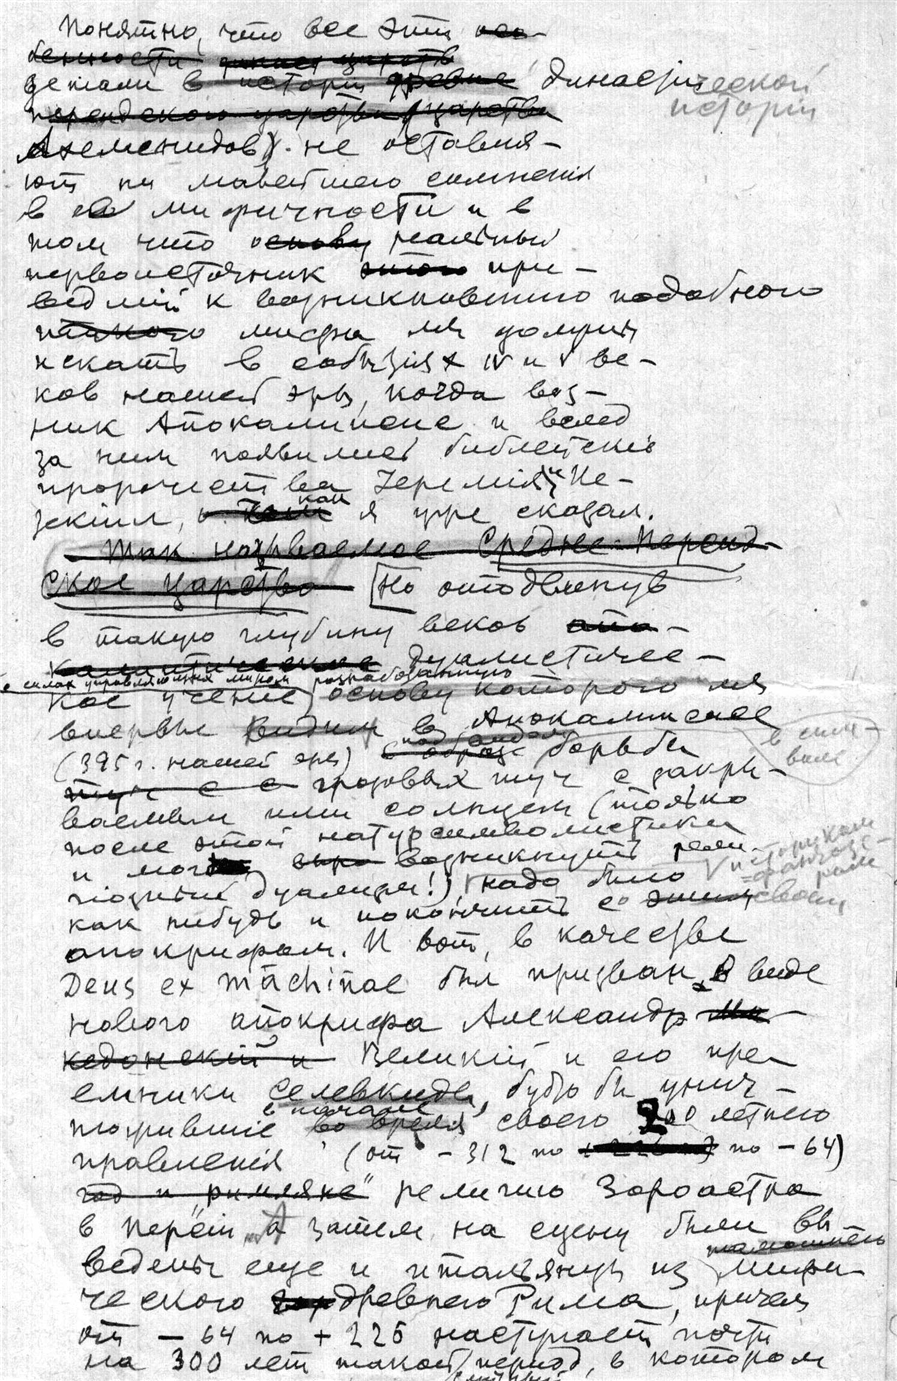 Понятно, что все эти осо-
бенности
детали в исторіи древне династической
исторіи
персидского царства (царства
Ахеменидов). не оставля-
ют ни малейшего сомненія
в ея мифичности и в
том что основу реальный
первоисточник этого при-
ведшій к возникновению подобного
такого мифа мы должны
искать в событіях IV и V ве-
ков нашей эры, когда воз-
ник Апокалипсис и вслед
за ним появились библейскіе
пророчества Іереміи, Іе-
зекіил, как я уже сказал.
Так называемое Средне-Персид-
ское царство [Но отодвинув
в такую глубину веков апо-
калиптическое дуалистичес-
о силах управляющих миром разработанную
кое учение, основу которого мы
впервые видим в Апокалипсисе
(395 г. нашей эры) в образе борьбы
под видом
в сим-
воле
туч с с грозовых туч с закры-
ваемым ими солнцем (только
после этой натурсимволистики
и мог возникнуть рели-
гіозный дуализм!), надо было
историкам
-фантазе-
рам
как нибудь и покончить со этим своим
апокрифом. И вот, в качестве
Deus ex machinae был призван, в виде
нового апокрифа Александр Ма-
кедонскій и Великій и его пре-
емники Селевкиды, будто бы унич-
в начале
тожившіе во время своего 200 летнего
правленія (от -312 по по -64)
год и "римляне" религію Зороастра
в Персіи, А затем на сцену были вы
ведены еще и итальянцы из мифи-
ческого древнего Рима, причем
от -64 по +226 наступает почти
на 300 лет такой період, в котором